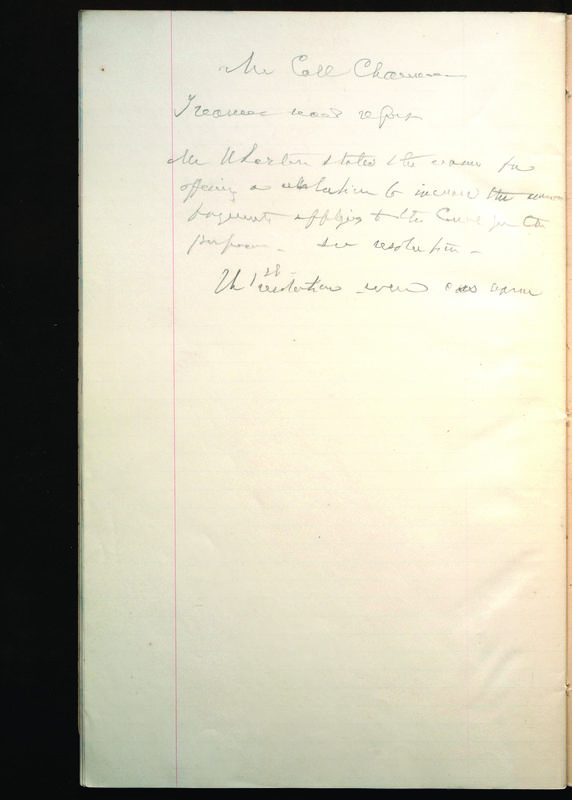 Mr Call Chairman
Treasurer read report
Mr Wharton stated the reason for
offering a resolution to increase the
payments applies to the
purpose - see resolution -
The 1st resolution were